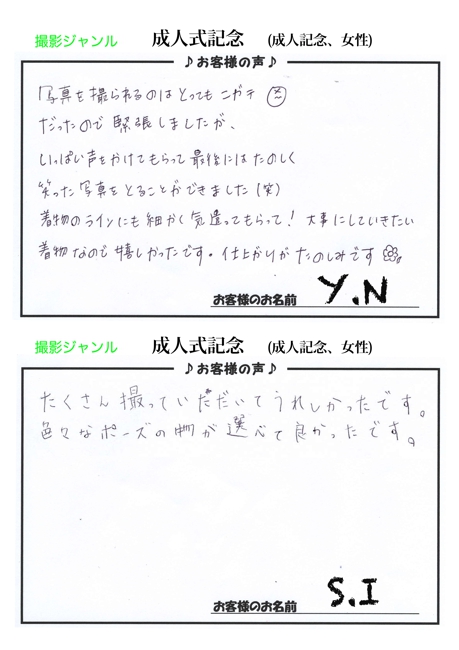 撮影ジャンル 成人式記念 (成人記念、女性)
♪お客様の声♪
写真を撮られるのはとってもニガテ
だったので緊張しましたが、
いっぱい声をかけてもらって最後にはたのしく
笑った写真をとることができました(笑)
着物のラインにも細かく気遣ってもらって!大事にしていきたい
着物なので嬉しかったです。仕上がりがたのしみです
お客様のお名前 Y.N
撮影ジャンル 成人式記念 (成人記念、女性)
♪お客様の声♪
たくさん撮っていただいてうれしかったです。
色々なポーズの物が選べて良かったです。
お客様のお名前 S.I